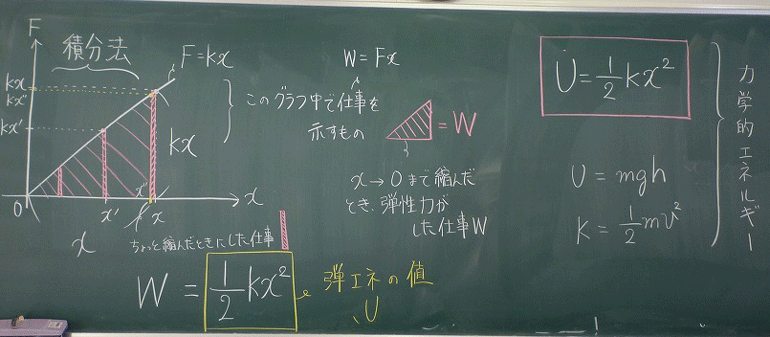 F
積分法
F=kx
kx
kx''
kx'
kx
O
x'
x''
x
x
x
W=Fx
このグラフ中で仕事を
示すもの
=W
x→0まで縮んだ
とき、弾性力が
した仕事W
ちょっと縮んだときにした仕事
W = 1/2 kx²
弾エネの値
U
U=1/2 kx²
U = mgh
K = 1/2 mv²
力学的エネルギー